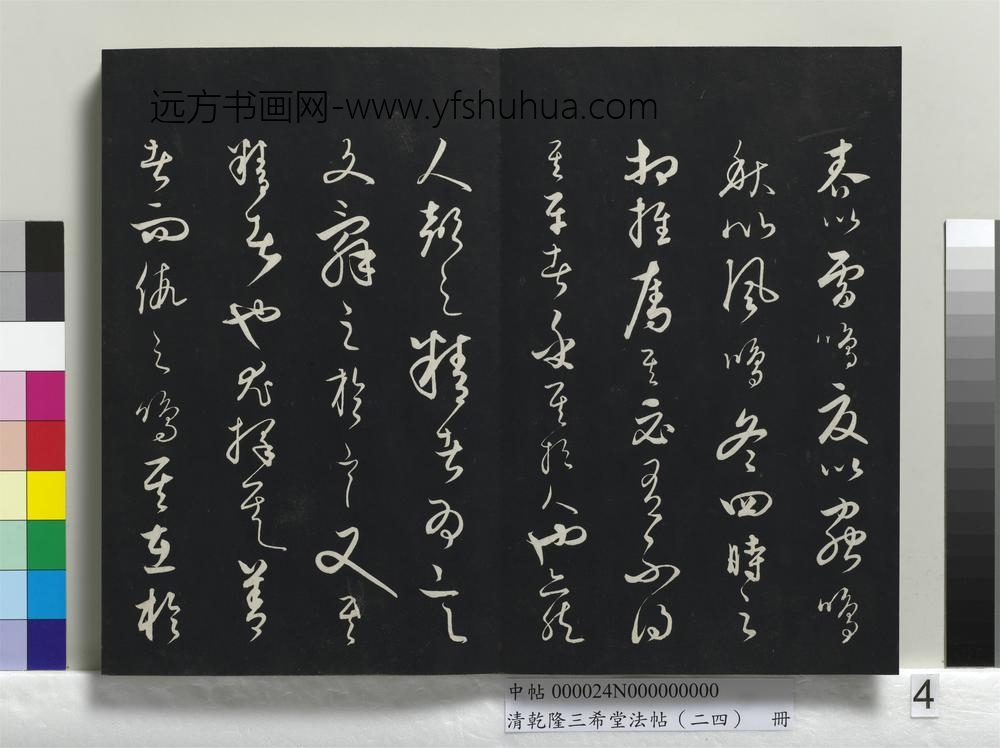 远方书画网-www.yfshuhua.com
春以雷鳴夏以蟲鳴
秋以風鳴冬四時之
相推奪其必有不得
其平者乎其於人也亦然
人聲之精者為言
文辭之於言又其
精者也尤擇其善
者而假之鳴其在於
中帖 000024N000000000
清乾隆三希堂法帖（二四） 冊
4